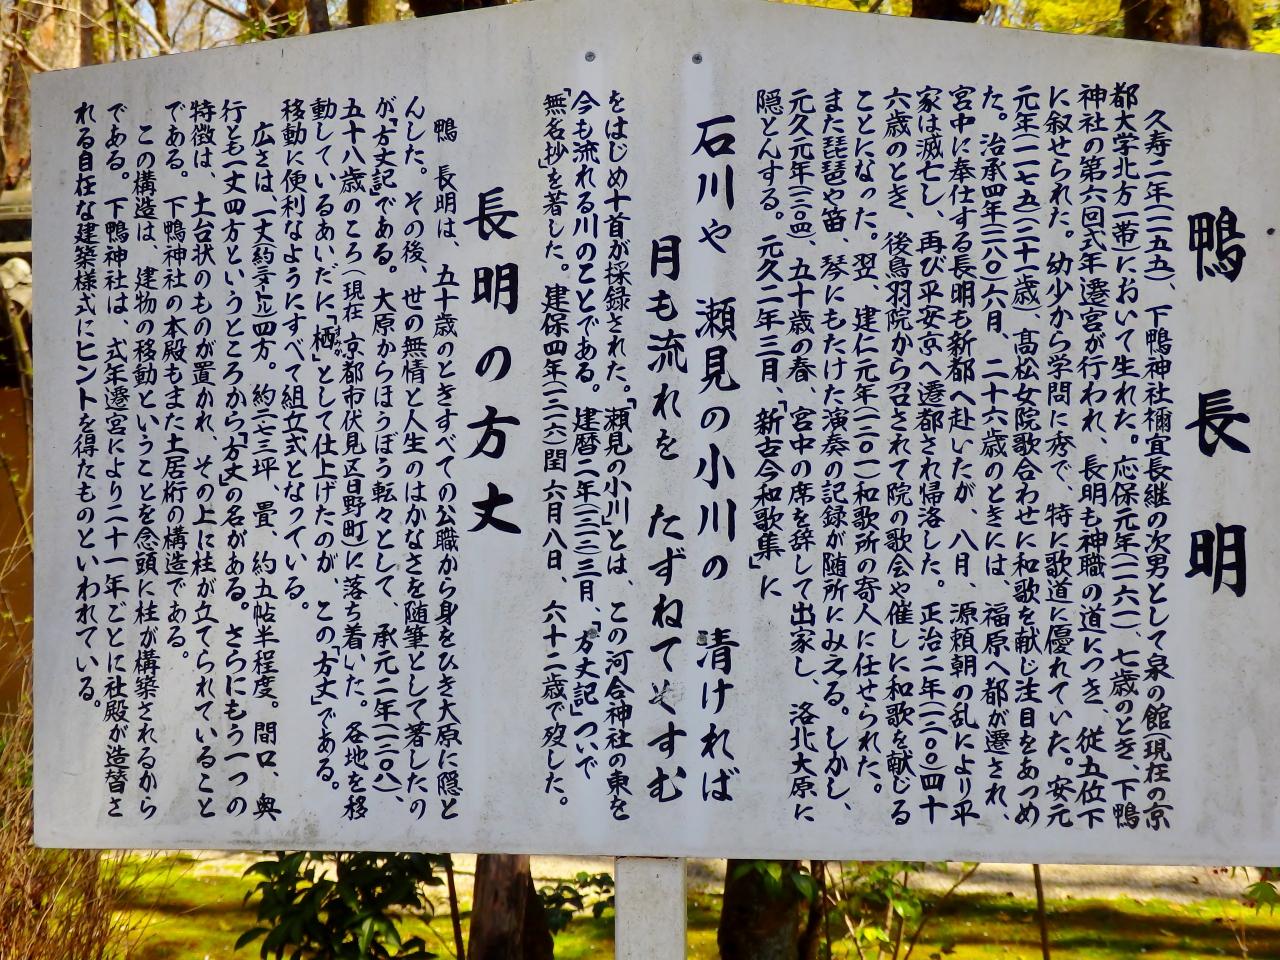 鴨長明
久寿二年(一一五五)、下鴨神社禰宜長継の次男として泉の館(現在の京
都大学北方一帯)において生れた。応保元年(一一六一)、七歳のとき、下鴨
神社の第六回式年遷宮が行われ、長明も神職の道につき、従五位下
に叙せられた。幼少から学問に秀で、特に歌道に優れていた。安元
元年(一一七五)(二十一歳)、髙松女院歌合わせに和歌を献じ注目をあつめ
た。治承四年(一一八〇)六月、二十六歳のときには、福原へ都が遷され、
宮中に奉仕する長明も新都へ赴いたが、八月、源頼朝の乱により平
家は滅亡し、再び平安京へ遷都され帰洛した。正治二年(一二〇〇)四十
六歳のとき、後鳥羽院から召されて院の歌会や催しに和歌を献じる
ことになった。翌、建仁元年(一二〇一)和歌所の寄人に任せられた。
また琵琶や笛、琴にもたけた演奏の記録が随所にみえる。しかし、
元久元年(一二〇四)、五十歳の春、宮中の席を辞して出家し、洛北大原に
隠とんする。元久二年三月、「新古今和歌集」に
石川や 瀬見の小川の 清ければ
月も流れを たずねてぞすむ
をはじめ十首が採録された。「瀬見の小川」とは、この河合神社の東を
今も流れる川のことである。建暦二年(一二一二)三月、「方丈記」ついで
「無名抄」を著した。建保四年(一二一六)閏六月八日、六十二歳で歿した。
長明の方丈
鴨 長明は、五十歳のときすべての公職から身をひき大原に隠と
んした。その後、世の無情と人生のはかなさを随筆として著したの
が「方丈記」である。大原からほうぼう転々として、承元二年(一二〇八)、
五十八歳のころ(現在 京都市伏見区日野町)に落ち着いた。各地を移
動しているあいだに「栖」として仕上げたのが、この「方丈」である。
移動に便利なようにすべて組立式となっている。
広さは、一丈(約三メートル)四方。約二・七三坪、畳、約五帖半程度。間口、奥
行とも一丈四方というところから「方丈」の名がある。さらにもう一つの
特徴は、土台状のものが置かれ、その上に柱が立てられていること
である。下鴨神社の本殿もまた土居桁の構造である。
この構造は、建物の移動ということを念頭に柱が構築されるから
である。下鴨神社は、式年遷宮により二十一年ごとに社殿が造替さ
れる自在な建築様式にヒントを得たものといわれている。